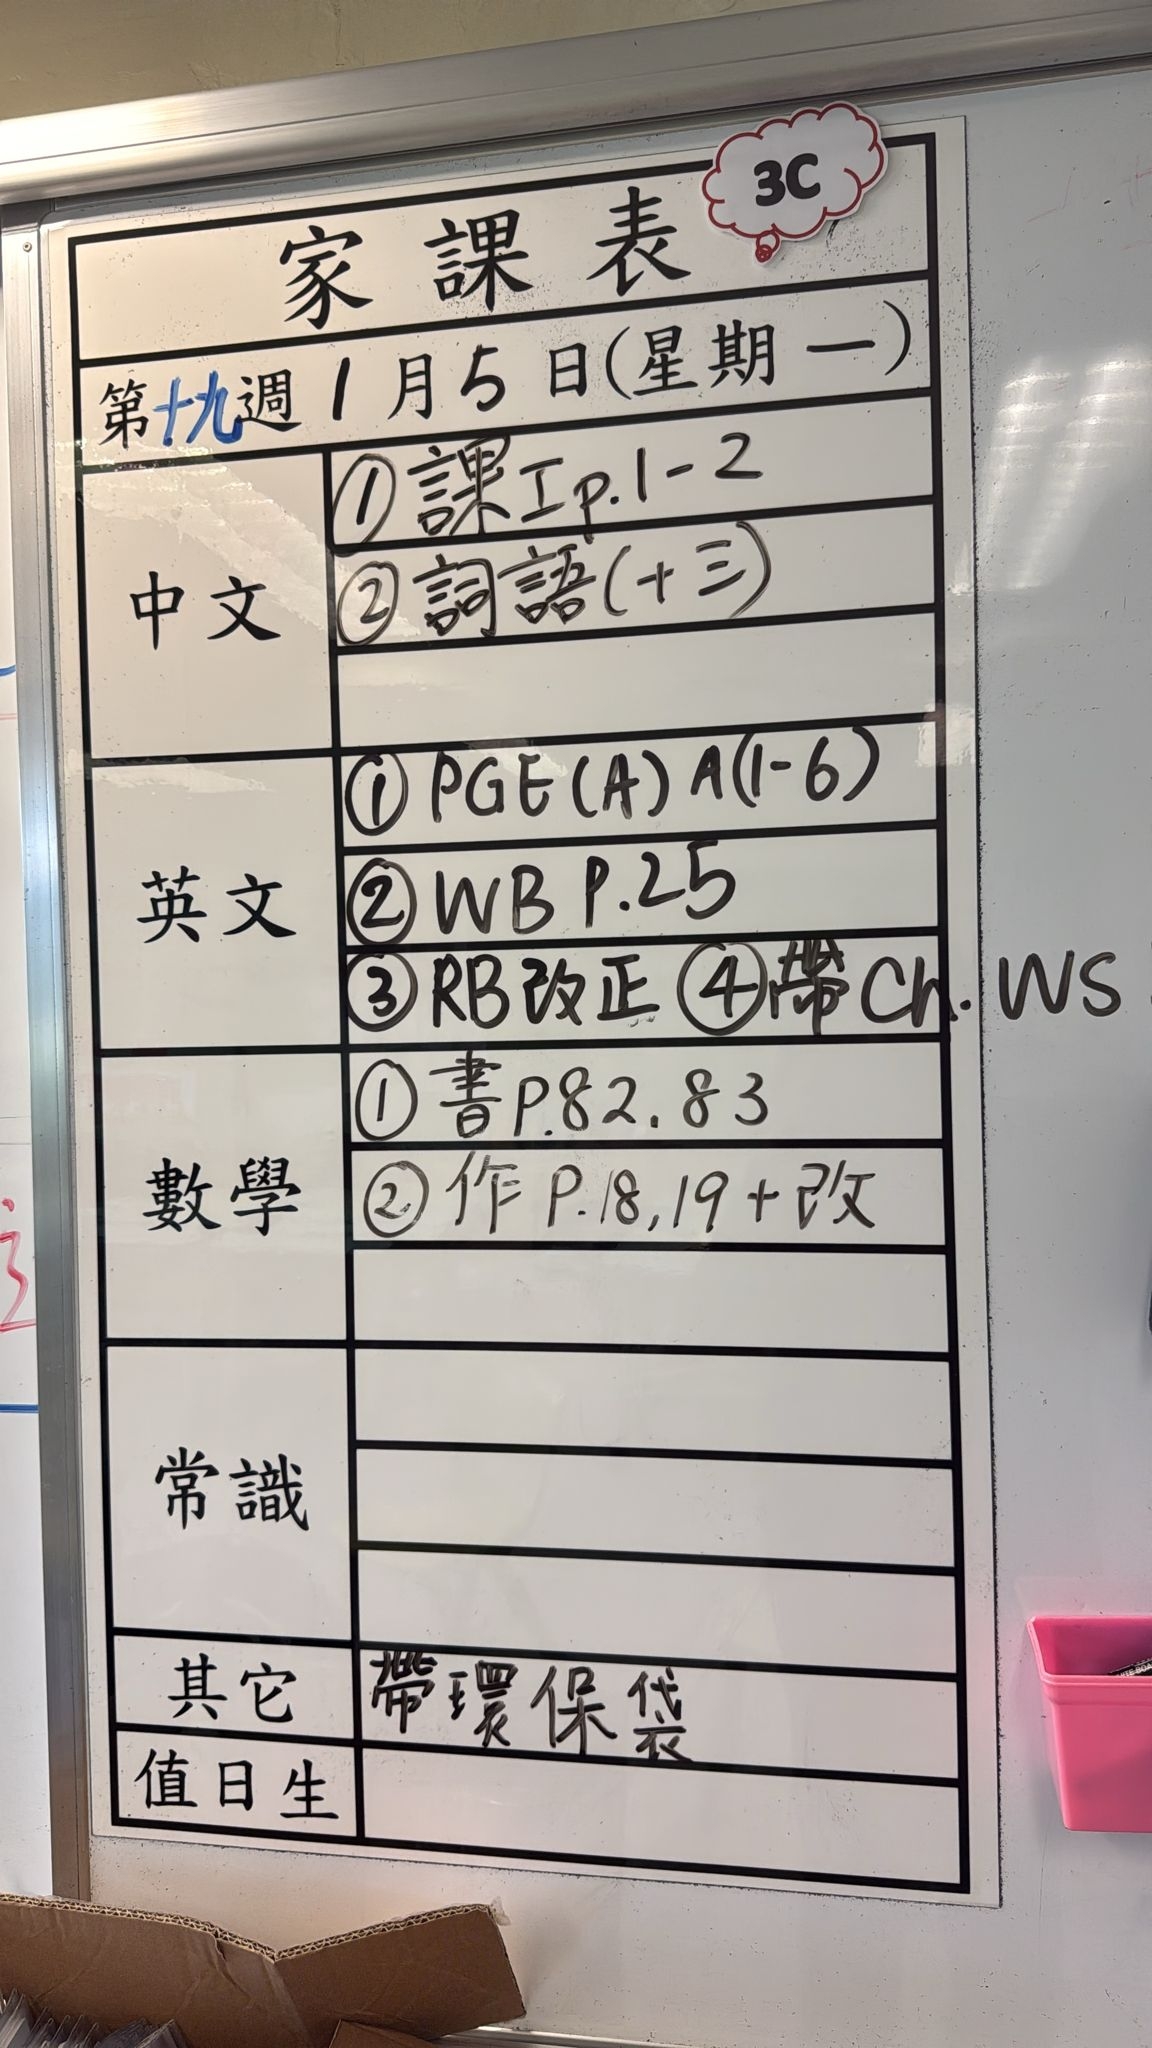 3C
家課表
第十九週 1月5日(星期一)
中文
① 課工p.1-2
② 詞語(十三)
英文
① PGE(A) A(1-6)
② WB P.25
③ RB改正 ④帶Ch. WS
數學
① 書P.82.83
② 作 P.18,19+改
常識
其它
帶環保袋
值日生